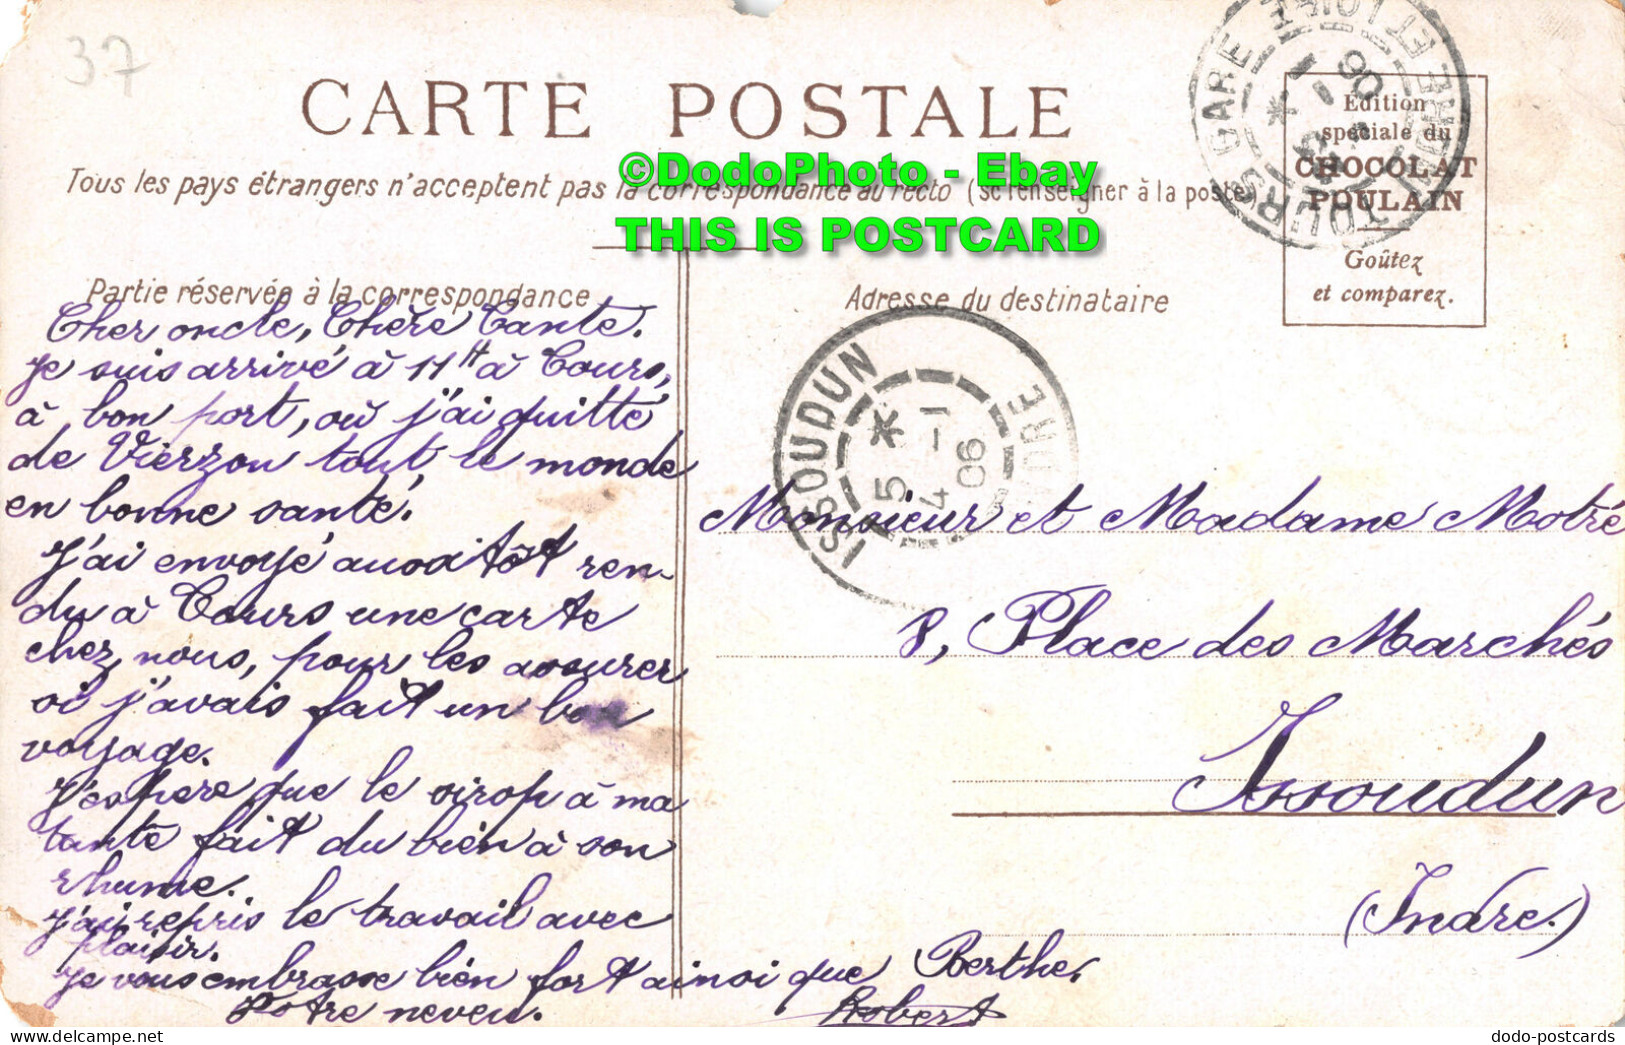 37
CARTE POSTALE
Tous les pays étrangers n'acceptent pas la correspondance au recto (se renseigner à la poste)
©DodoPhoto - Ebay
THIS IS POSTCARD
TOURS GARE
INDRE ET LOIRE
06
Edition
spéciale du
CHOCOLAT
POULAIN
Goûtez
et comparez.
Partie réservée à la correspondance
Cher oncle, Chère Tante.
Je suis arrivé à 11H à Tours,
à bon port, où j'ai quitté
de Vierzon tout le monde
en bonne santé.
J'ai envoyé aussitôt ren-
du à Tours une carte
chez nous, pour les assurer
si j'avais fait un bon
voyage.
J'espère que le sirop à ma
tante fait du bien à son
rhume.
J'ai repris le travail avec
plaisir.
Je vous embrasse bien fort ainsi que Berthe,
Votre neveu.
Robert
Adresse du destinataire
ISSOUDUN
INDRE
5 *
4 -1
06
Monsieur et Madame Motré
8, Place des Marchés
Issoudun
(Indre.)
dodo-postcards